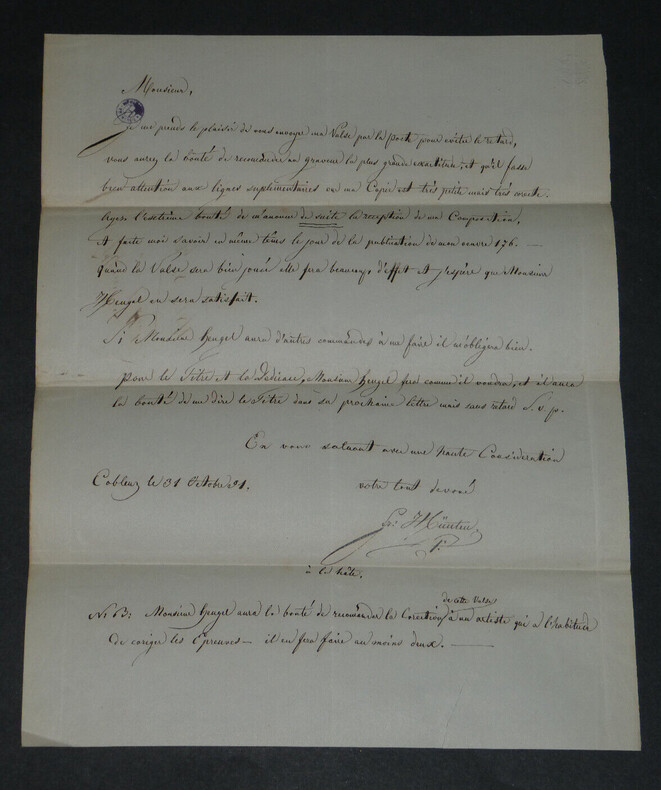 Monsieur,
Je me prends le plaisir de vous envoyer ma Valse par la poste pour evitér le retard,
vous aurez la bonté de recomander au graveur la plus grande exactitude, et qu'il fasse
bien attention aux lignes suplementaires car ma Copie est trés petite mais trés correcte.
Ayez l'extrême bonté de m'anoncer de suite la reception de ma Composition,
et faite moi savoir en même têms le jour de la publication de mon oeuvre 176. —
Quand la Valse sera bien jouée elle fera beaucoup d'effet et j'espère que Monsieur
Heugel en sera satisfait.
Si Monsieur Heugel aura d'autres commandes à me faire il m'obligera bien.
Pour le Titre et la Dedicace, Monsieur Heugel fera comme il voudra, et il aura
la bonté de me dire le Titre dans sa prochaine lettre mais sans retard S. v. p.
En vous saluant avec une haute Consideration
Coblenz le 31 Octobre 51.
votre tout devoué
Fr: Hünten
à la hâte.
de cette Valse
N: B: Monsieur Heugel aura la bonté de recomander la Corection à un artiste qui a l'habitude
de coriger les Epreuves — il en fera faire au moins deux. —